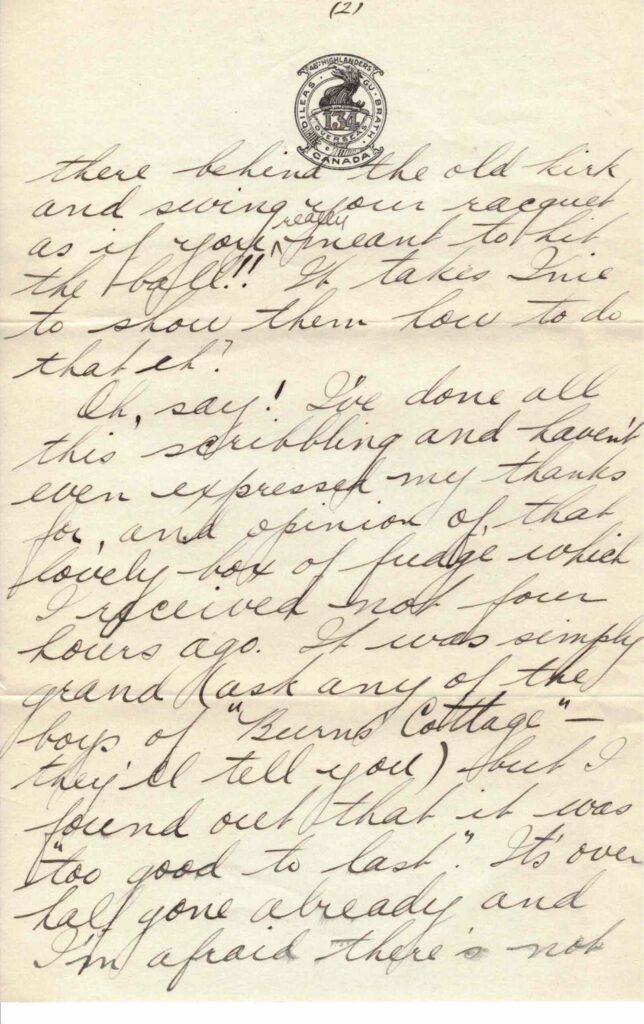 (2)
48TH HIGHLANDERS
DILEAS GU BRATH
134
OVERSEAS
CANADA
there behind the old kirk
and swing your racquet
as if you really meant to hit
the ball!! It takes
to show them how to do
that eh?
Oh, say! I've done all
this scribbling and haven't
even expressed my thanks
for, and opinion of, that
lovely box of fudge which
I received not four
hours ago. It was simply
grand (ask any of the
boys of "Burns Cottage" —
they'll tell you) but I
found out that it was
"too good to last". It's over
half gone already and
I'm afraid there's not